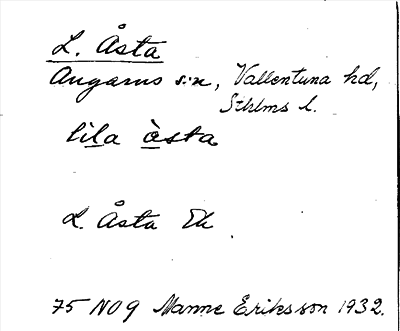 L. Åsta
Angarns s:n, Vallentuna hd,
Sthlms l.
lila åsta
L. Åsta Ek
75 NO 9 Manne Eriksson 1932.